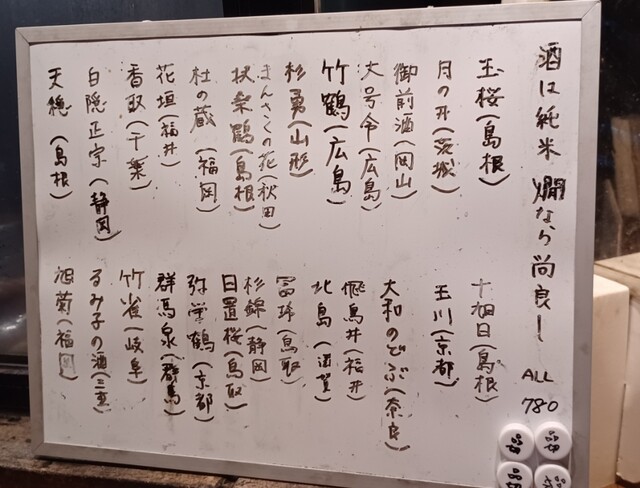 酒は純米 燗なら尚良！
ALL
780
玉桜(島根)
月の井(茨城)
御前酒(岡山)
大号令(広島)
竹鶴(広島)
杉勇(山形)
まんさくの花(秋田)
扶桑鶴(島根)
杜の蔵(福岡)
花垣(福井)
香取(千葉)
白隠正宗(静岡)
天穏(島根)
十旭日(島根)
玉川(京都)
大和のどぶ(奈良)
飛鳥井(福井)
北島(滋賀)
冨玲(鳥取)
杉錦(静岡)
日置桜(鳥取)
弥栄鶴(京都)
群馬泉(群馬)
竹雀(岐阜)
るみ子の酒(三重)
旭菊(福岡)